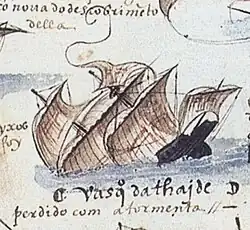 nova do descobrimẽto
della
C Vasq̃ da thaide D
perdido com a tormenta //